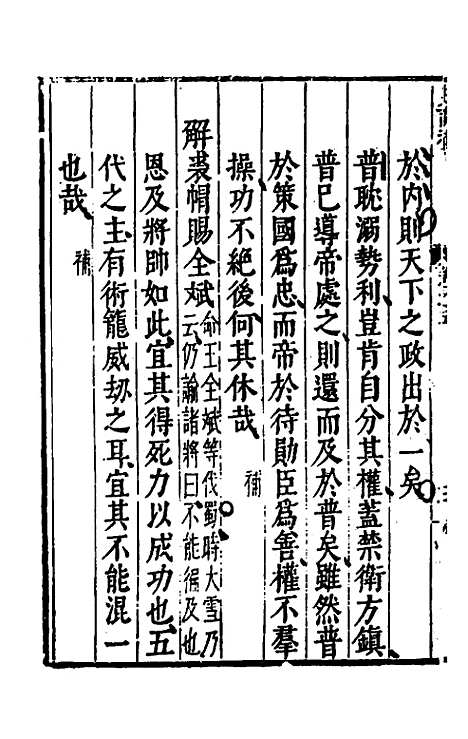 於内則天下之政出於一矣
普耽溺勢利豈肯自分其權蓋禁衛方鎮
普已導帝處之則還而及於普矣雖然普
於策國爲忠而帝於待勛臣爲善權不羣
操功不絕後何其休哉 補
解裘帽賜全斌命王全斌等伐蜀時大雪乃
云仍諭諸將曰不能徧及也
恩及將帥如此宜其得死力以成功也五
代之主有術籠威刼之耳宜其不能混一
也哉 補